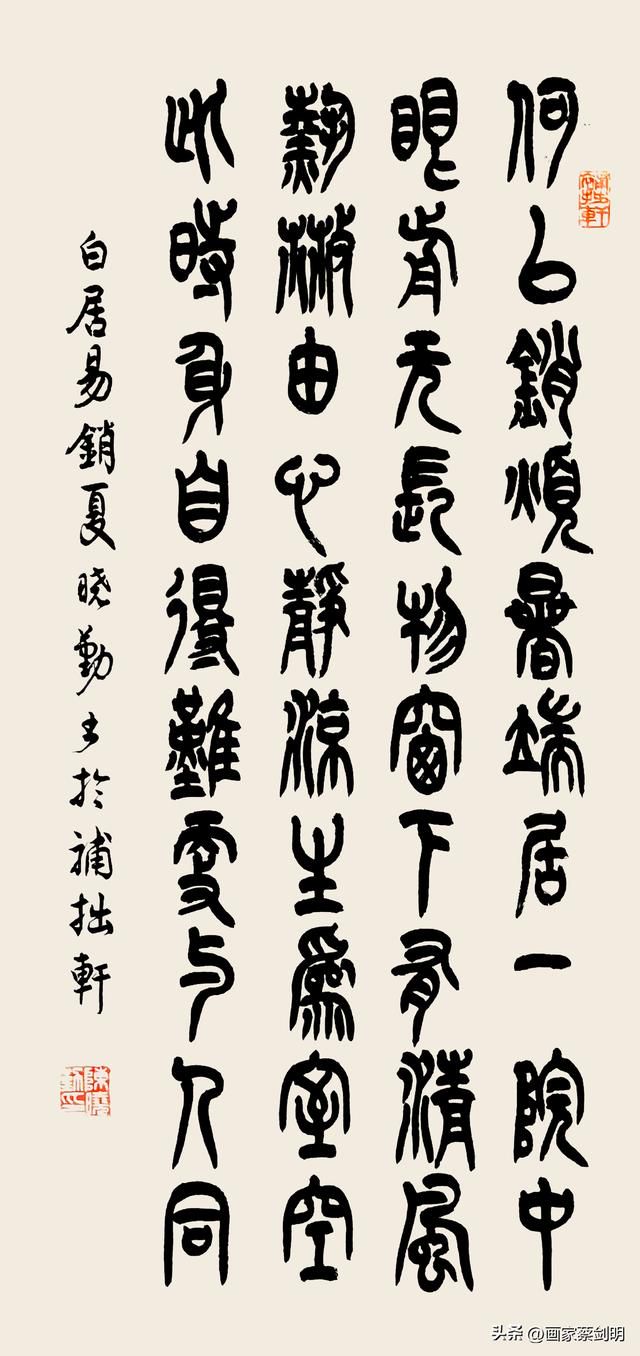 補拙軒
何以銷煩暑端居一院中
眼前无長物窗下有清風
熱散由心靜涼生爲室空
此時身自得難更与人同
白居易銷夏晓勤书於補拙軒
陳曉勤印
头条 @画家蔡剑明